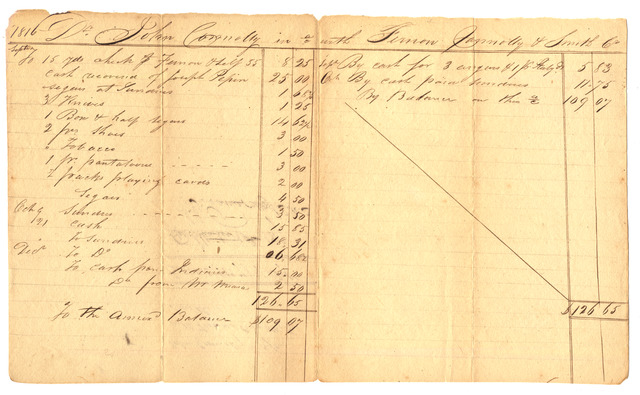 1816 Dr. John Connolly in a/c with Fernon Connolly & Smith Co
To 15 yds check p Fernon & Self 55 8 25
cash received of Joseph Pepin 25 00
segars at Sundries 1 68½
3 Knives 1 25
1 Box & half segars 14 62½
2 prs Shoes 3 00
Tobacco 1 50
1 pr pantaloons 3 00
packs playing cards 2 00
Segars 4 50
Octr 9 Sundries 3 50
21 Cash 15 85
To Sundries 18 31
To Do
To Cash 15 00
Do from Mr 2 50
126 65
To the Amount Balance $109 07
By cash for 3 5 83
By cash paid sundries 11 75
By Balance on this a/c 109 07
$126 65